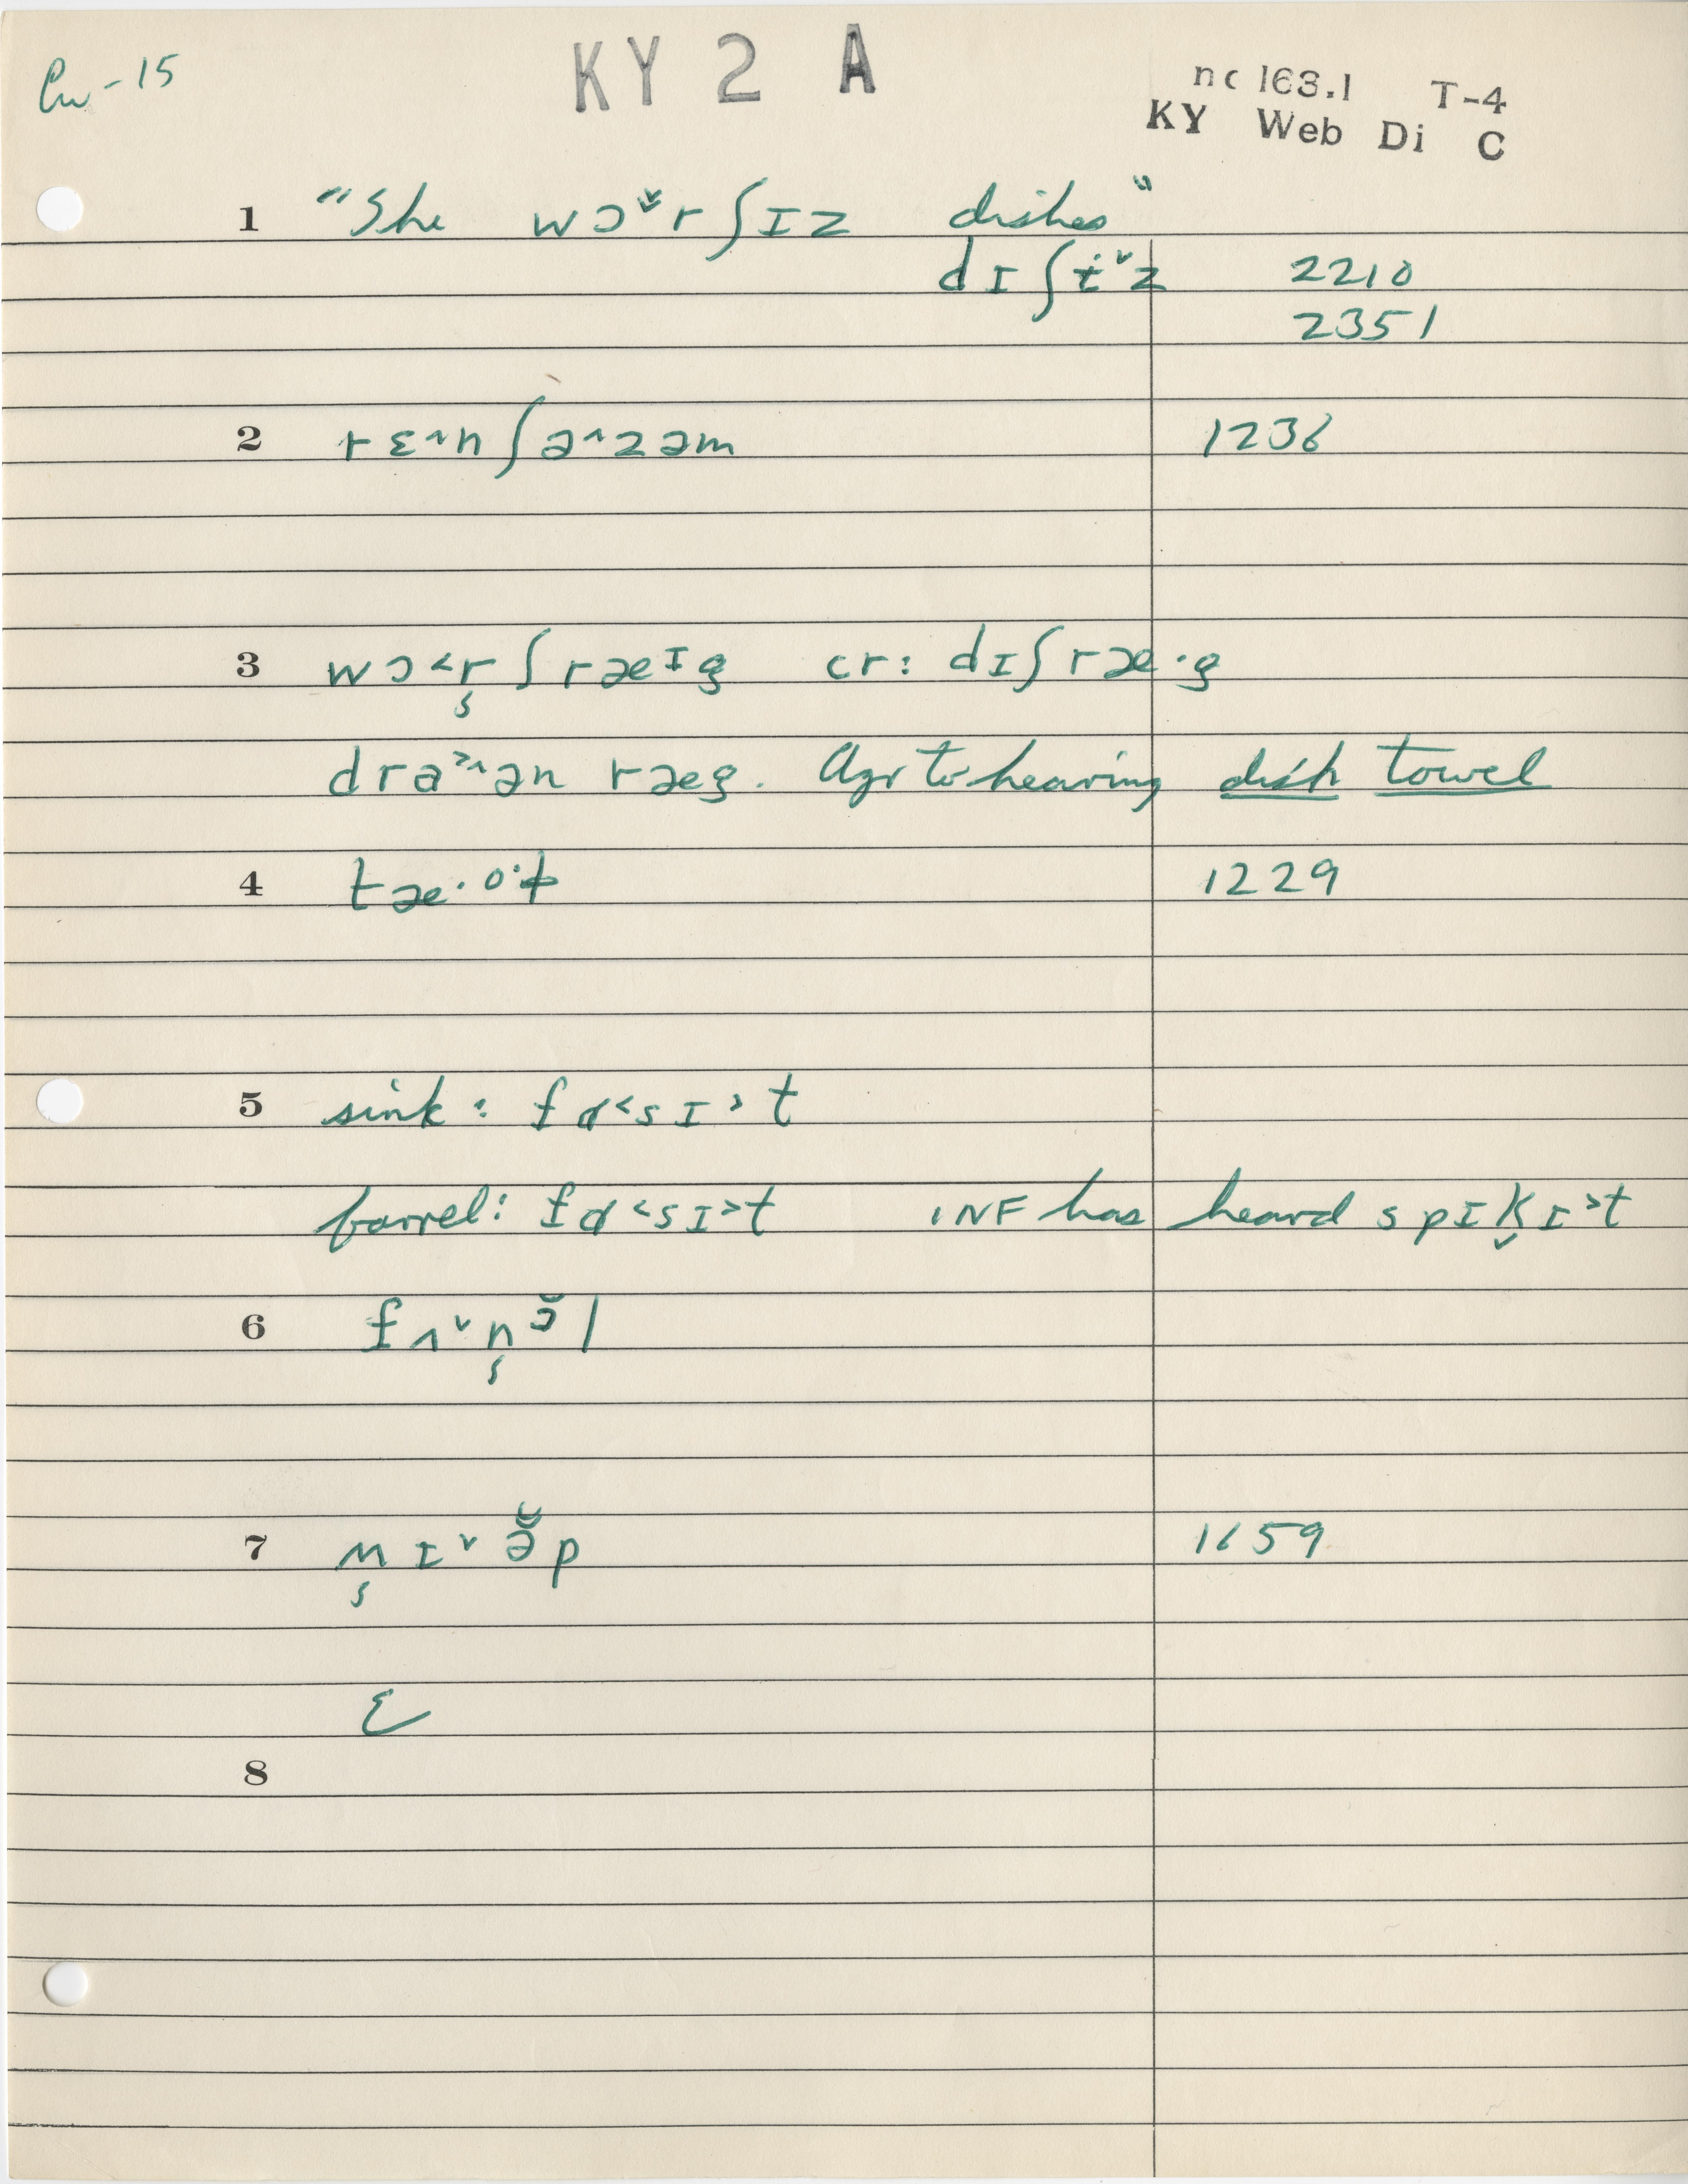 Cw-15
KY 2 A
nc 163.1 T-4
KY Web Di C
1 "She wɔ˅̌rʃɪz dishes"
dɪʃɨ˅z 2210
2351
2 rɛ˄nʃə˄zəm 1236
3 wɔ˂r̡ʃræᴵg cr: dɪʃræ·g
dra˃˄ən ræg. Agr to hearing dish towel
4 tæ·ᵒ·ɫ 1229
5 sink: fɑ˂sɪ˃t
barrel: fɑ˂sɪ˃t INF has heard spɪk̬ɪ˃t
6 fʌ˅n̡ɔ̆l
7 ʍ̡ɪ˅ə̆p 1659
Ɛ
8